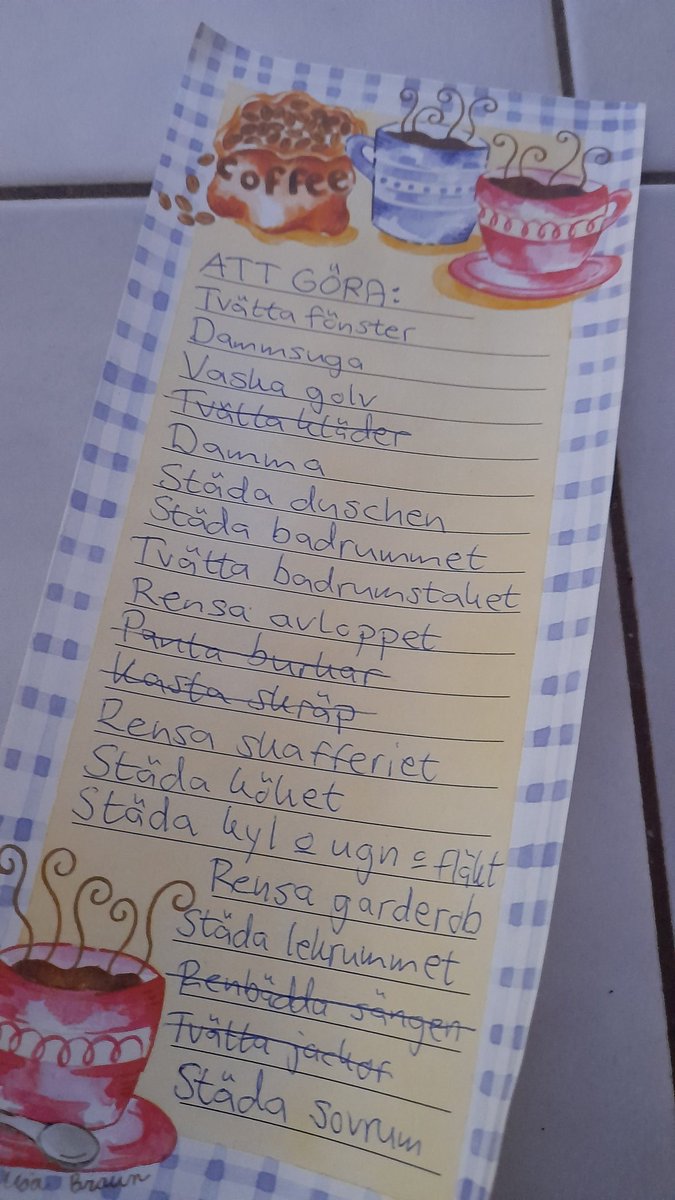 coffee
ATT GÖRA:
Tvätta fönster
Dammsuga
Vaska golv
Tvätta kläder
Damma
Städa duschen
Städa badrummet
Tvätta badrumstaket
Rensa avloppet
Panta burkar
Kasta skräp
Rensa skafferiet
Städa köket
Städa kyl o ugn o fläkt
Rensa garderob
Städa lekrummet
Renbädda sängen
Tvätta jackor
Städa sovrum
Braun